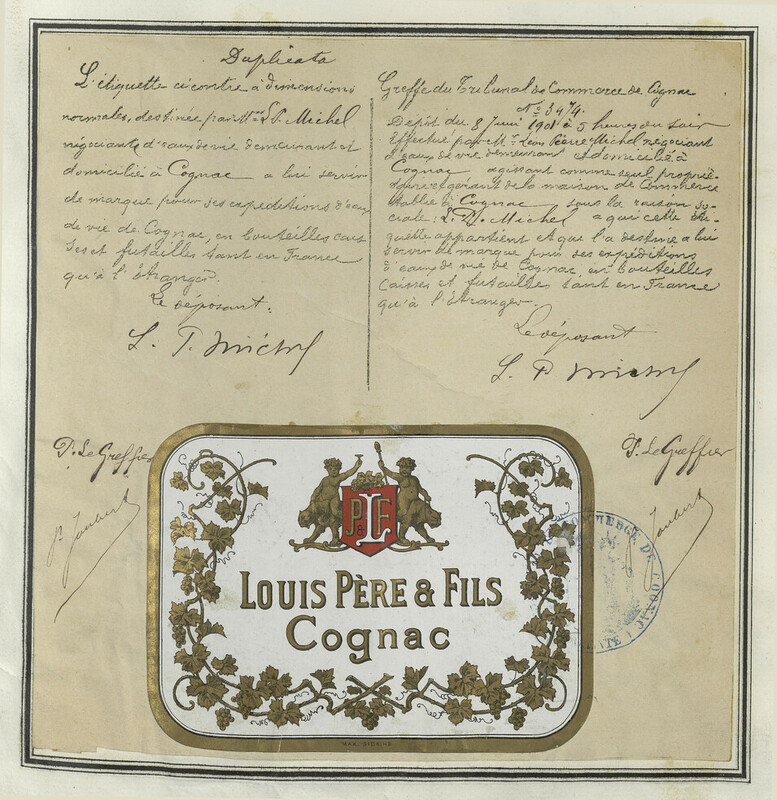 Duplicata
L'étiquette ci contre à dimensions
normales, destinée par Mr L.P. Michel
négociant d'eaux de vie demeurant et
domicilié à Cognac a lui servir
de marque pour ses expéditions d'eaux
de vie de Cognac, en bouteilles cais
ses et futailles tant en France
qu'à l'étranger.
Le déposant.
L. P. Michel
Greffe du Tribunal de Commerce de Cognac
No 3474.
Dépôt du 8 Juin 1901 à 5 heures du soir
Effectué par Mr Léon Pierre Michel négociant
d'eaux de vie demeurant et domicilié à
Cognac agissant comme seul proprié-
taire gérant de la maison de Commerce
établie à Cognac sous la raison so-
ciale: L. P. Michel a qui cette éti-
quette appartient et que l'a destiné a lui
servir de marque pour ses expéditions
d'eaux de vie de Cognac, en bouteilles
caisses et futailles tant en France
qu'à l'étranger.
Le déposant
L. P. Michel
P. Le Greffier
P. Joubert
P. Le Greffier
Joubert
COMMERCE DE COGNAC
P L & F
LOUIS PÈRE & FILS
Cognac